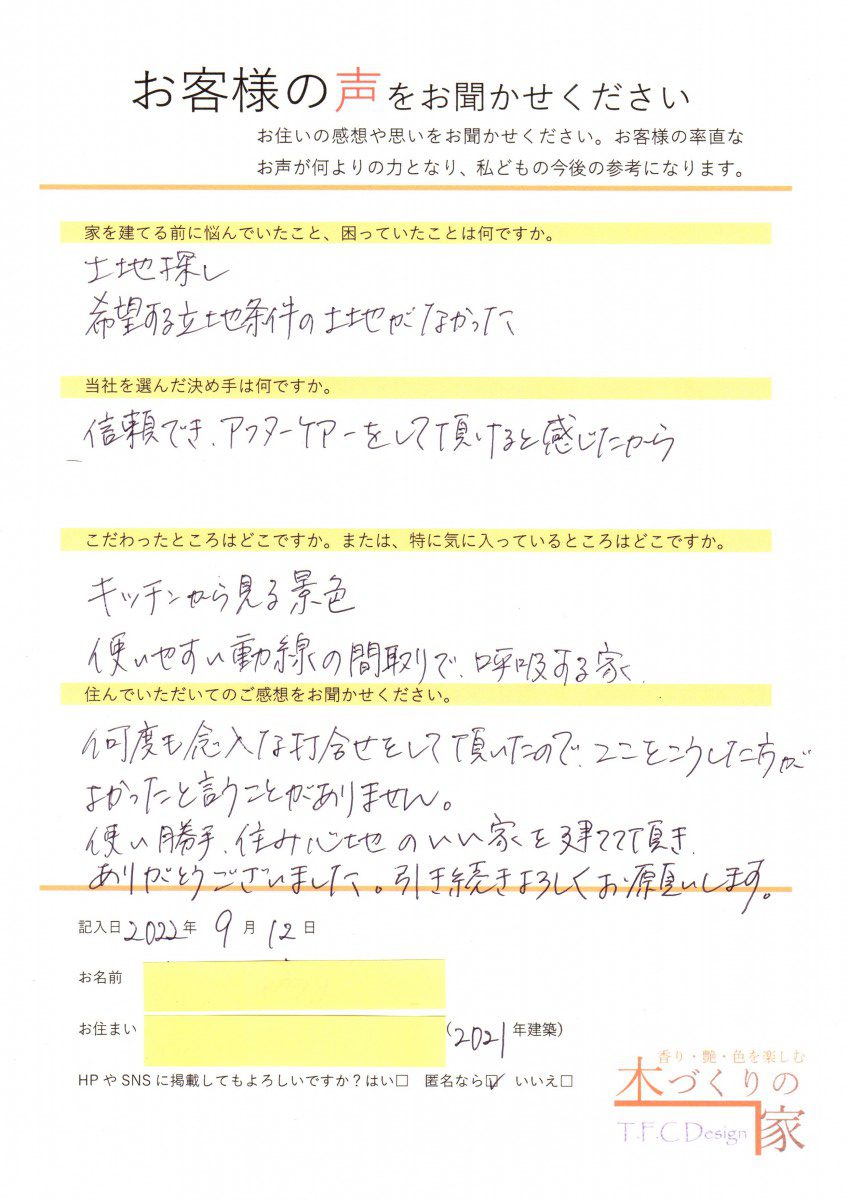 お客様の声をお聞かせください
お住いの感想や思いをお聞かせください。お客様の率直な
お声が何よりの力となり、私どもの今後の参考になります。
家を建てる前に悩んでいたこと、困っていたことは何ですか。
土地探し
希望する立地条件の土地がなかった
当社を選んだ決め手は何ですか。
信頼でき、アフターケアーをして頂けると感じたから
こだわったところはどこですか。または、特に気に入っているところはどこですか。
キッチンから見る景色
使いやすい動線の間取りで、呼吸する家、
住んでいただいてのご感想をお聞かせください。
何度も念入な打合せをして頂いたので、ここをこうした方が
よかったと言うことがありません。
使い勝手、住み心地のいい家を建てて頂き、
ありがとうございました。引き続きよろしくお願いします。
記入日 2022年 9月 12日
お名前
お住まい (2021年建築)
HPやSNSに掲載してもよろしいですか？はい□ 匿名なら☑ いいえ□
香り・艶・色を楽しむ
木づくりの
家
T.F.C Design